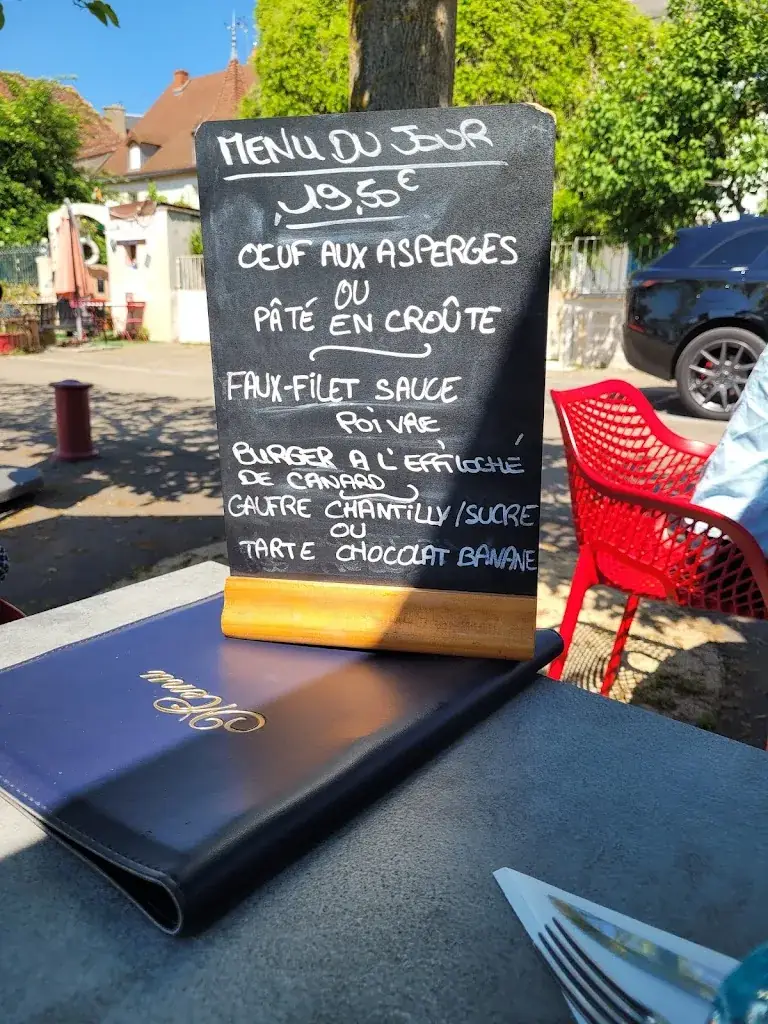 MENU DU JOUR
19,50€
OEUF AUX ASPERGES
OU
PÂTÉ EN CROÛTE
FAUX-FILET SAUCE
POIVRE
BURGER A L'EFFILOCHÉ
DE CANARD
GAUFRE CHANTILLY/SUCRE
OU
TARTE CHOCOLAT BANANE
Menu